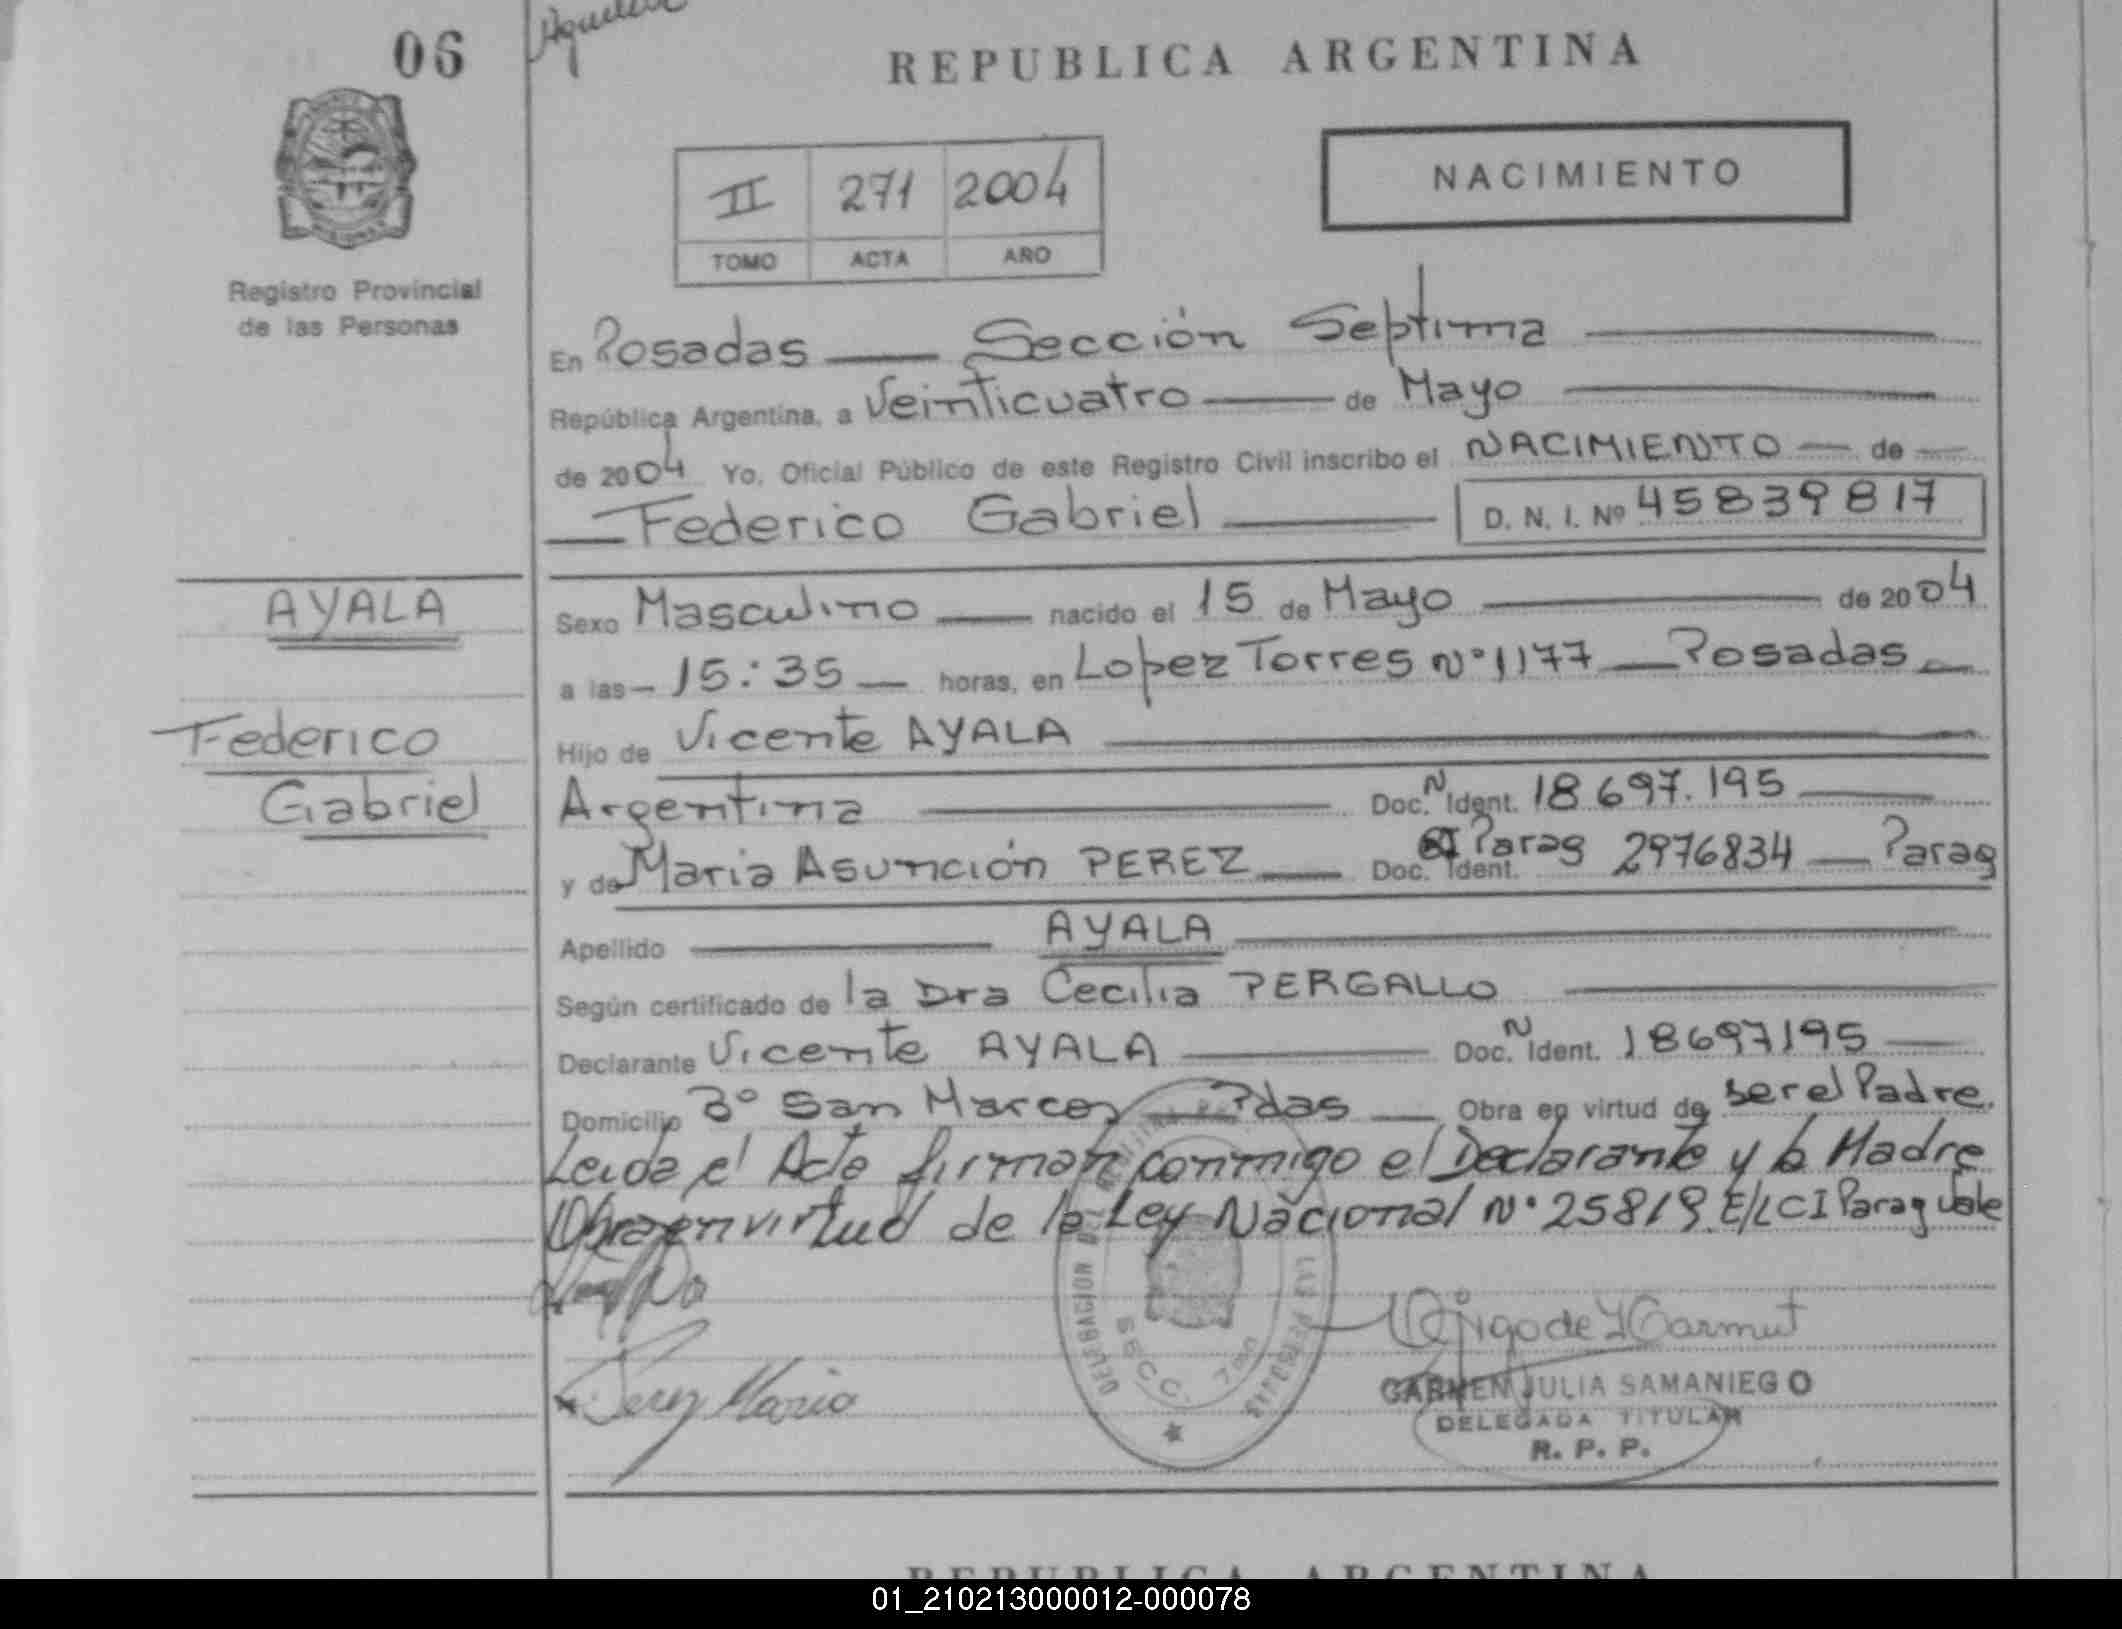 06
REPUBLICA ARGENTINA
II 271 2004
TOMO ACTA AÑO
NACIMIENTO
Registro Provincial
de las Personas
En Posadas — Sección Septima —
República Argentina, a Veinticuatro — de Mayo —
de 2004 Yo, Oficial Público de este Registro Civil inscribo el NACIMIENTO — de —
— Federico Gabriel — D. N. I. Nº 45839817
AYALA
Federico
Gabriel
Sexo Masculino — nacido el 15 de Mayo — de 2004
a las — 15:35 — horas, en Lopez Torres Nº 1177 — Posadas —
Hijo de Vicente AYALA —
Argentina — Doc. N Ident. 18697.195 —
y de Maria Asunción PEREZ — Doc. Ident. Parag 2976834 — Parag
Apellido — AYALA —
Según certificado de la Dra Cecilia PERGALLO —
Declarante Vicente AYALA — Doc. N Ident. 18697195 —
Domicilio Bº San Marcos — Pdas — Obra en virtud de ser el Padre.
Leida el Acta firman conmigo el Declarante y la Madre
Obra en virtud de la Ley Nacional Nº 25819. E/L CI Parag Vale
Perez Maria
DELEGACION LAS PERSONAS
SECC. 7ma
CARMEN JULIA SAMANIEGO
DELEGADA TITULAR
R. P. P.
REPUBLICA ARGENTINA
01_210213000012-000078